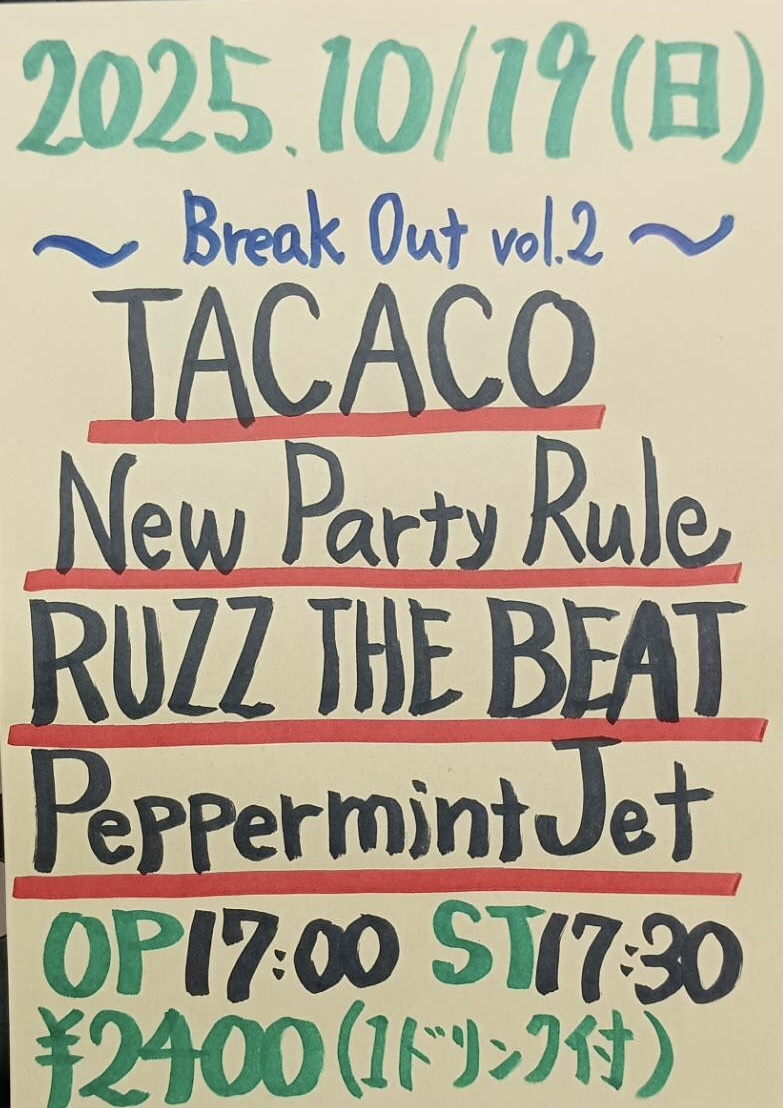 2025.10/19(日)
～ Break Out vol.2 ～
TACACO
New Party Rule
RUZZ THE BEAT
Peppermint Jet
OP17:00 ST17:30
¥2400(1ドリンク付)